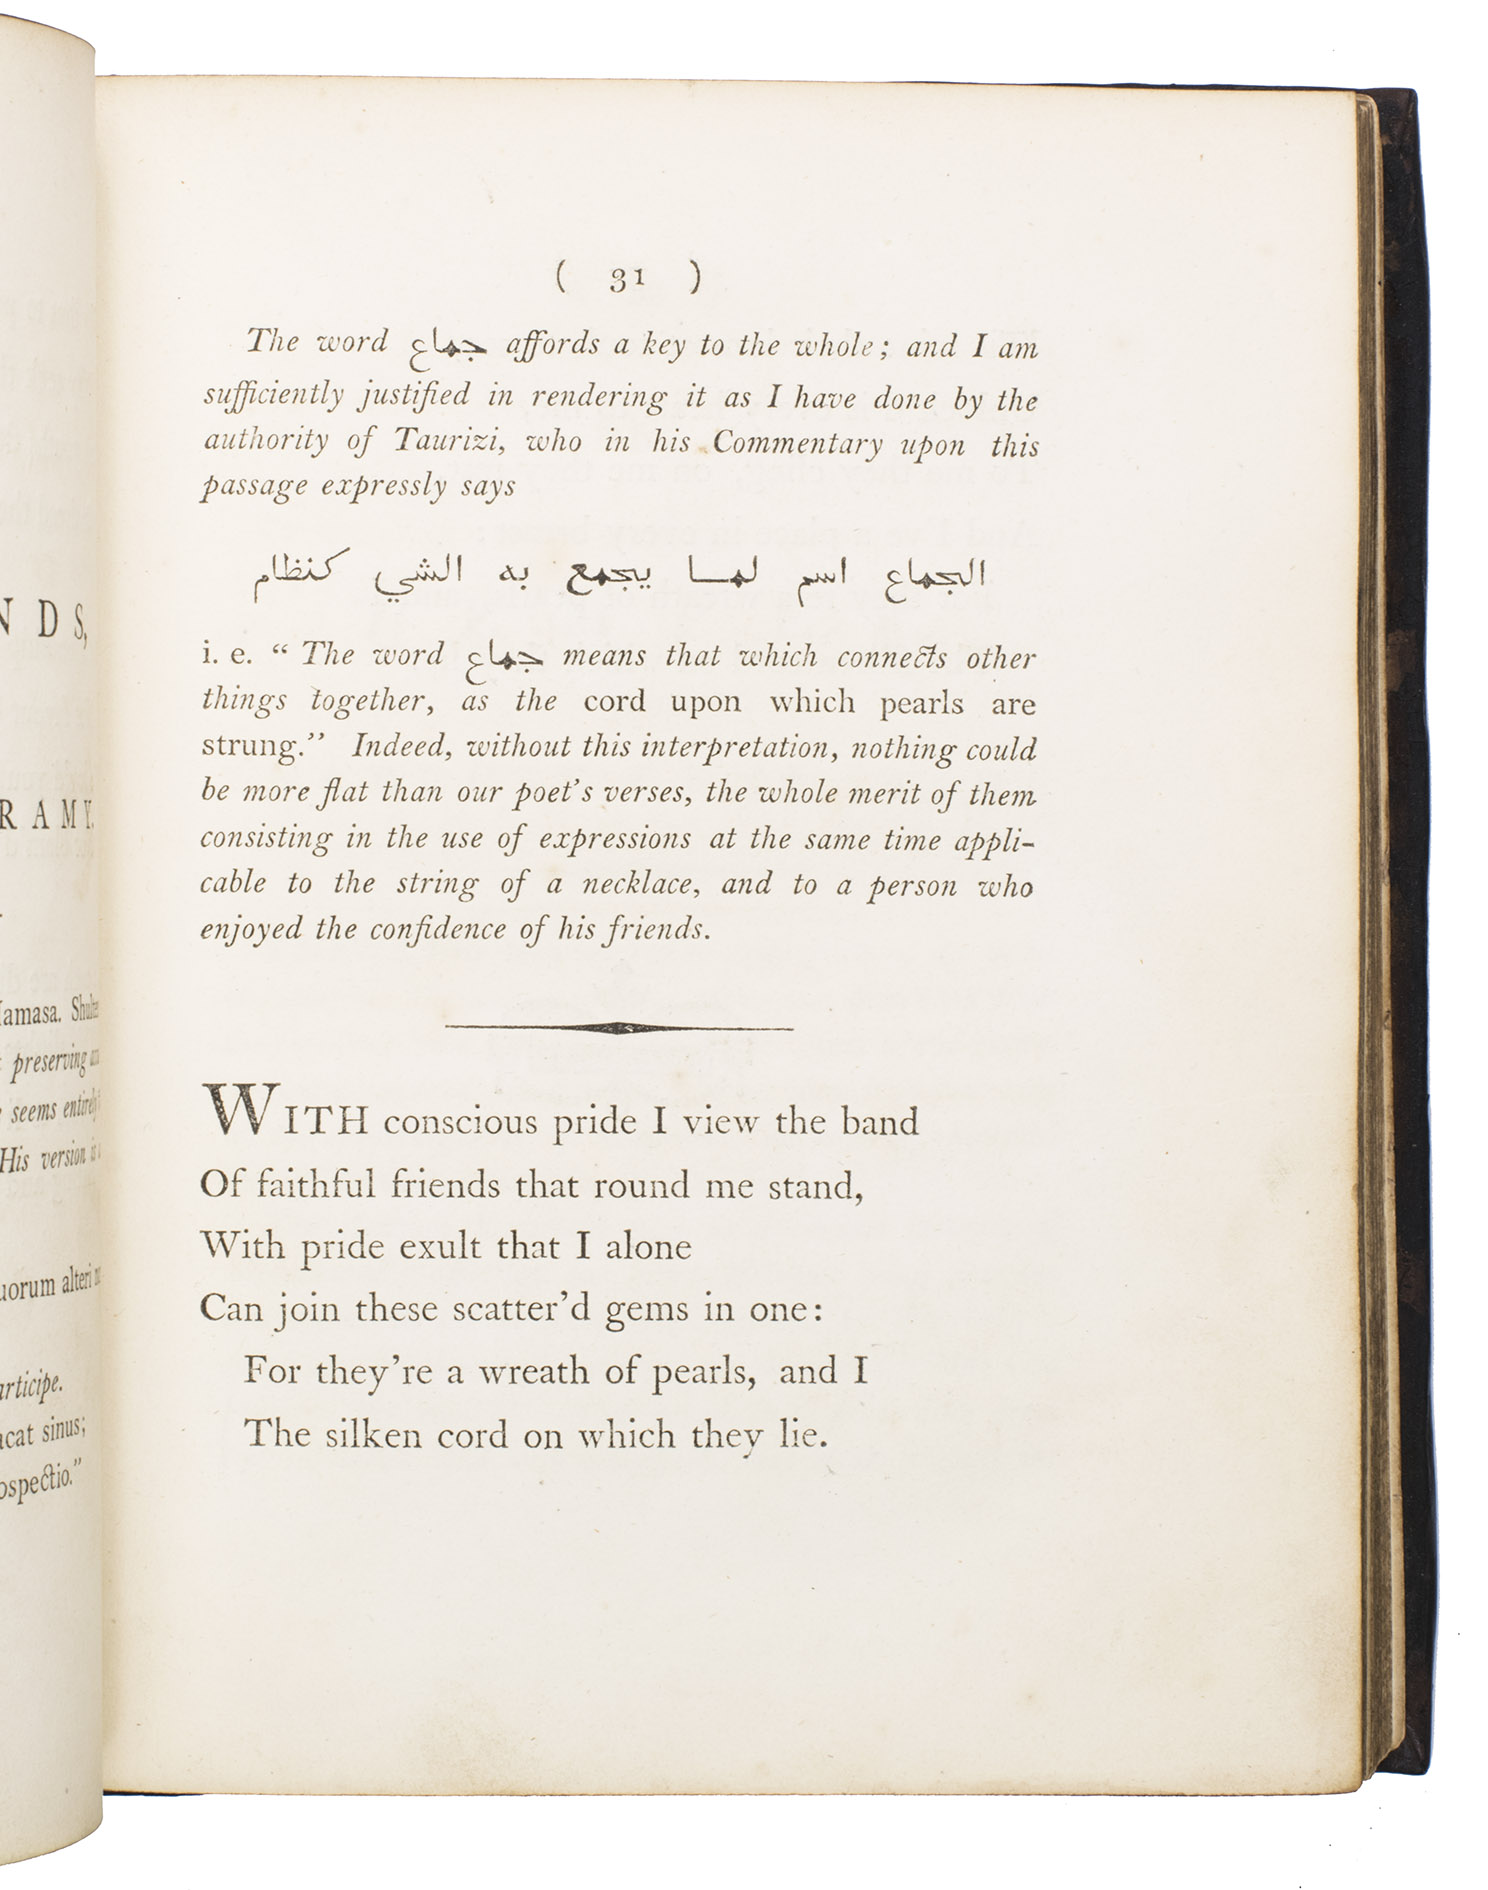 N D S,
R A M Y.
Hamasa.
preserving
seems
His version
uorum alteri
articipe.
cat sinus;
ospectio.”
( 31 )
The word جماع affords a key to the whole; and I am
sufficiently justified in rendering it as I have done by the
authority of Taurizi, who in his Commentary upon this
passage expressly says
الجماع اسم لمـا يجمع به الشي كنظام
i. e. “ The word جماع means that which connects other
things together, as the cord upon which pearls are
strung.” Indeed, without this interpretation, nothing could
be more flat than our poet’s verses, the whole merit of them
consisting in the use of expressions at the same time appli-
cable to the string of a necklace, and to a person who
enjoyed the confidence of his friends.
WITH conscious pride I view the band
Of faithful friends that round me stand,
With pride exult that I alone
Can join these scatter’d gems in one:
For they’re a wreath of pearls, and I
The silken cord on which they lie.